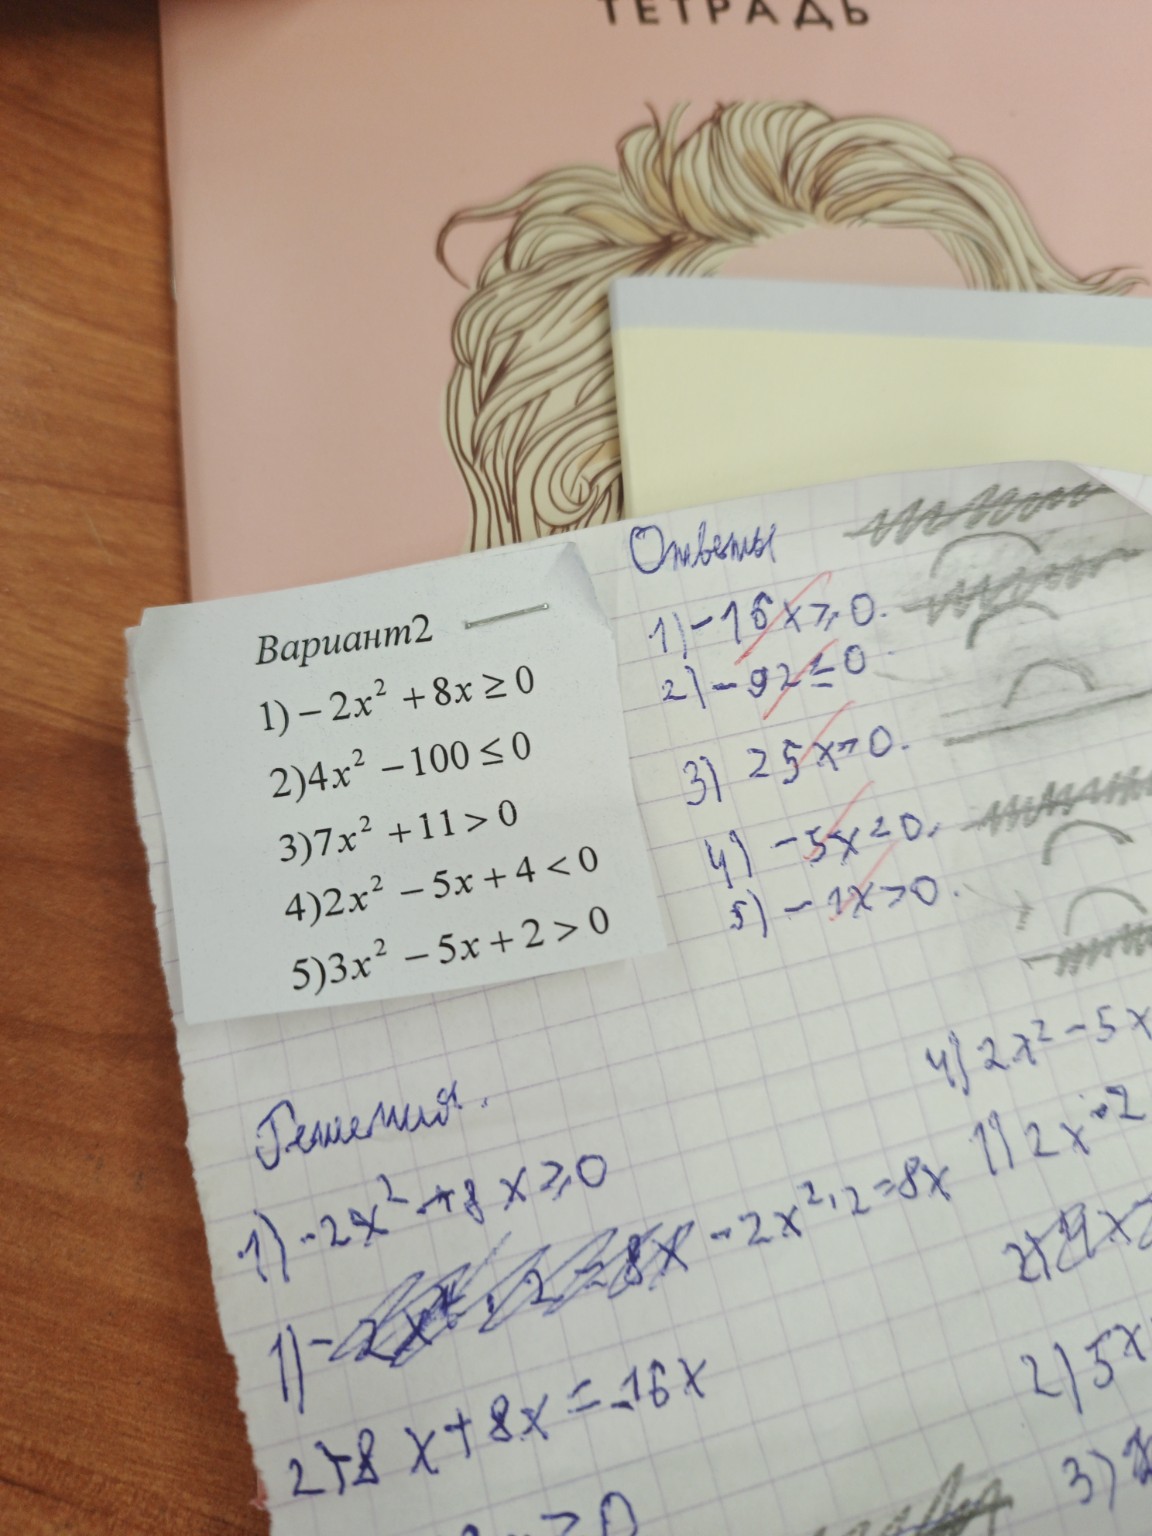 ТЕТРАДЬ
Вариант2
1) – 2x² + 8x ≥ 0
2)4x² – 100 ≤ 0
3)7x² + 11 > 0
4)2x² – 5x + 4 < 0
5)3x² – 5x + 2 > 0
Ответы
1) – 16x ≥ 0.
2) – 92 ≤ 0
3) 25x > 0.
4) – 5x < 0.
5) – 1x > 0.
Решения.
1) – 2x² + 8x ≥ 0
1) – 2x² · 2 = 8x
2) – 8x + 8x = – 16x
4) 2x² – 5x
1) 2x · 2
2) 5x
3)